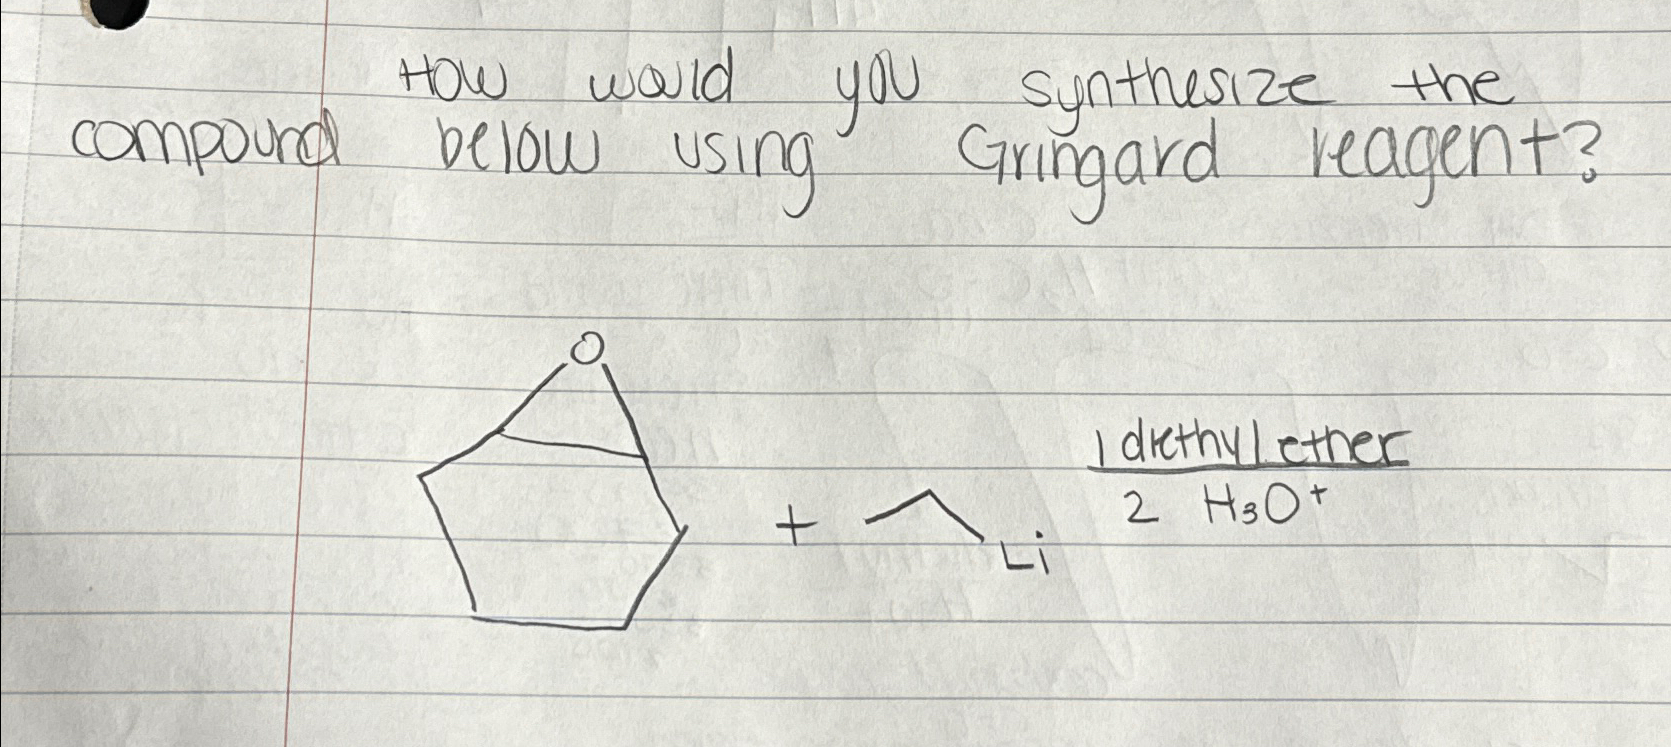 How would you synthesize the
compound below using Gringard reagent?
O
+
Li
1 diethyl ether
2 H3O+